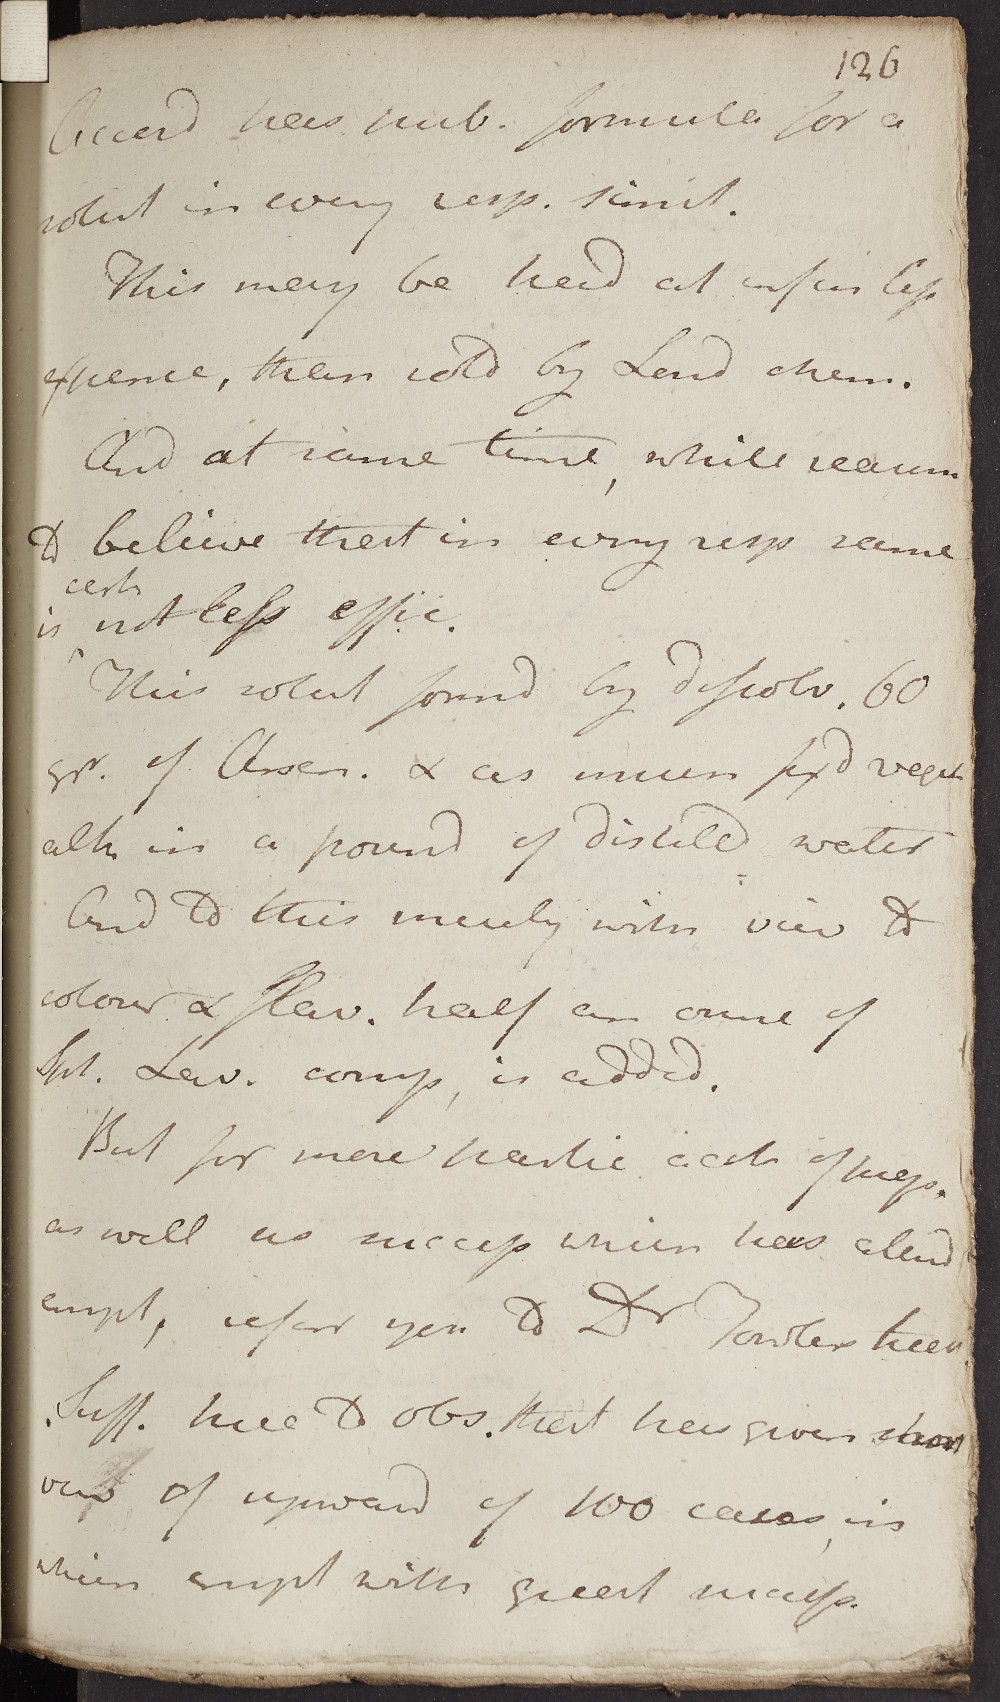 126
Accord has pub. formula for a
solut in every resp. simil.
This may be had at infin less
expence, than sold by Lond chem.
And at same time, while reason
to believe that in every resp same
cert
is not less effic.
This solut formd by dissolv. 60
gr. of Arsen. & as much fixd veget
alk in a pound of distilld water
And to this merely with view to
colour & flav. half an ounce of
Spt. Lav. comp, is added.
But for more partic acct of prep.
as well as success which has attend
empl, refer you to Dr Fowlers
Suff. here to obs. that has given short
view of upward of 100 cases, in
which empl with great success.